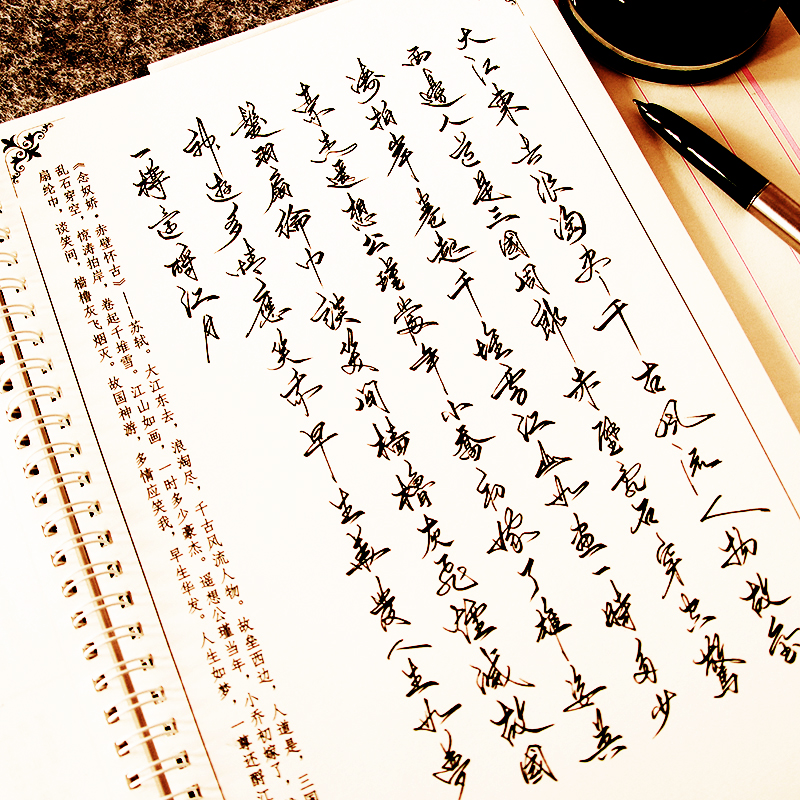 大江東去浪淘尽千古风流人物故垒
西邊人道是三國周郎赤壁亂石穿空驚
濤拍岸卷起千堆雪江山如畫一時多少
豪杰遥想公瑾當年小喬初嫁了雄姿英
髮羽扇倫巾談笑間樯櫓灰飛煙滅故國
神遊多情應笑我早生華發人生如夢
一樽還酹江月
《念奴娇，赤壁怀古》——苏轼。大江东去，浪淘尽，千古风流人物。故垒西边，人道是，三国
乱石穿空，惊涛拍岸，卷起千堆雪。江山如画，一时多少豪杰。遥想公瑾当年，小乔初嫁了，
扇纶巾，谈笑间，樯橹灰飞烟灭。故国神游，多情应笑我，早生华发。人生如梦，一尊还酹江